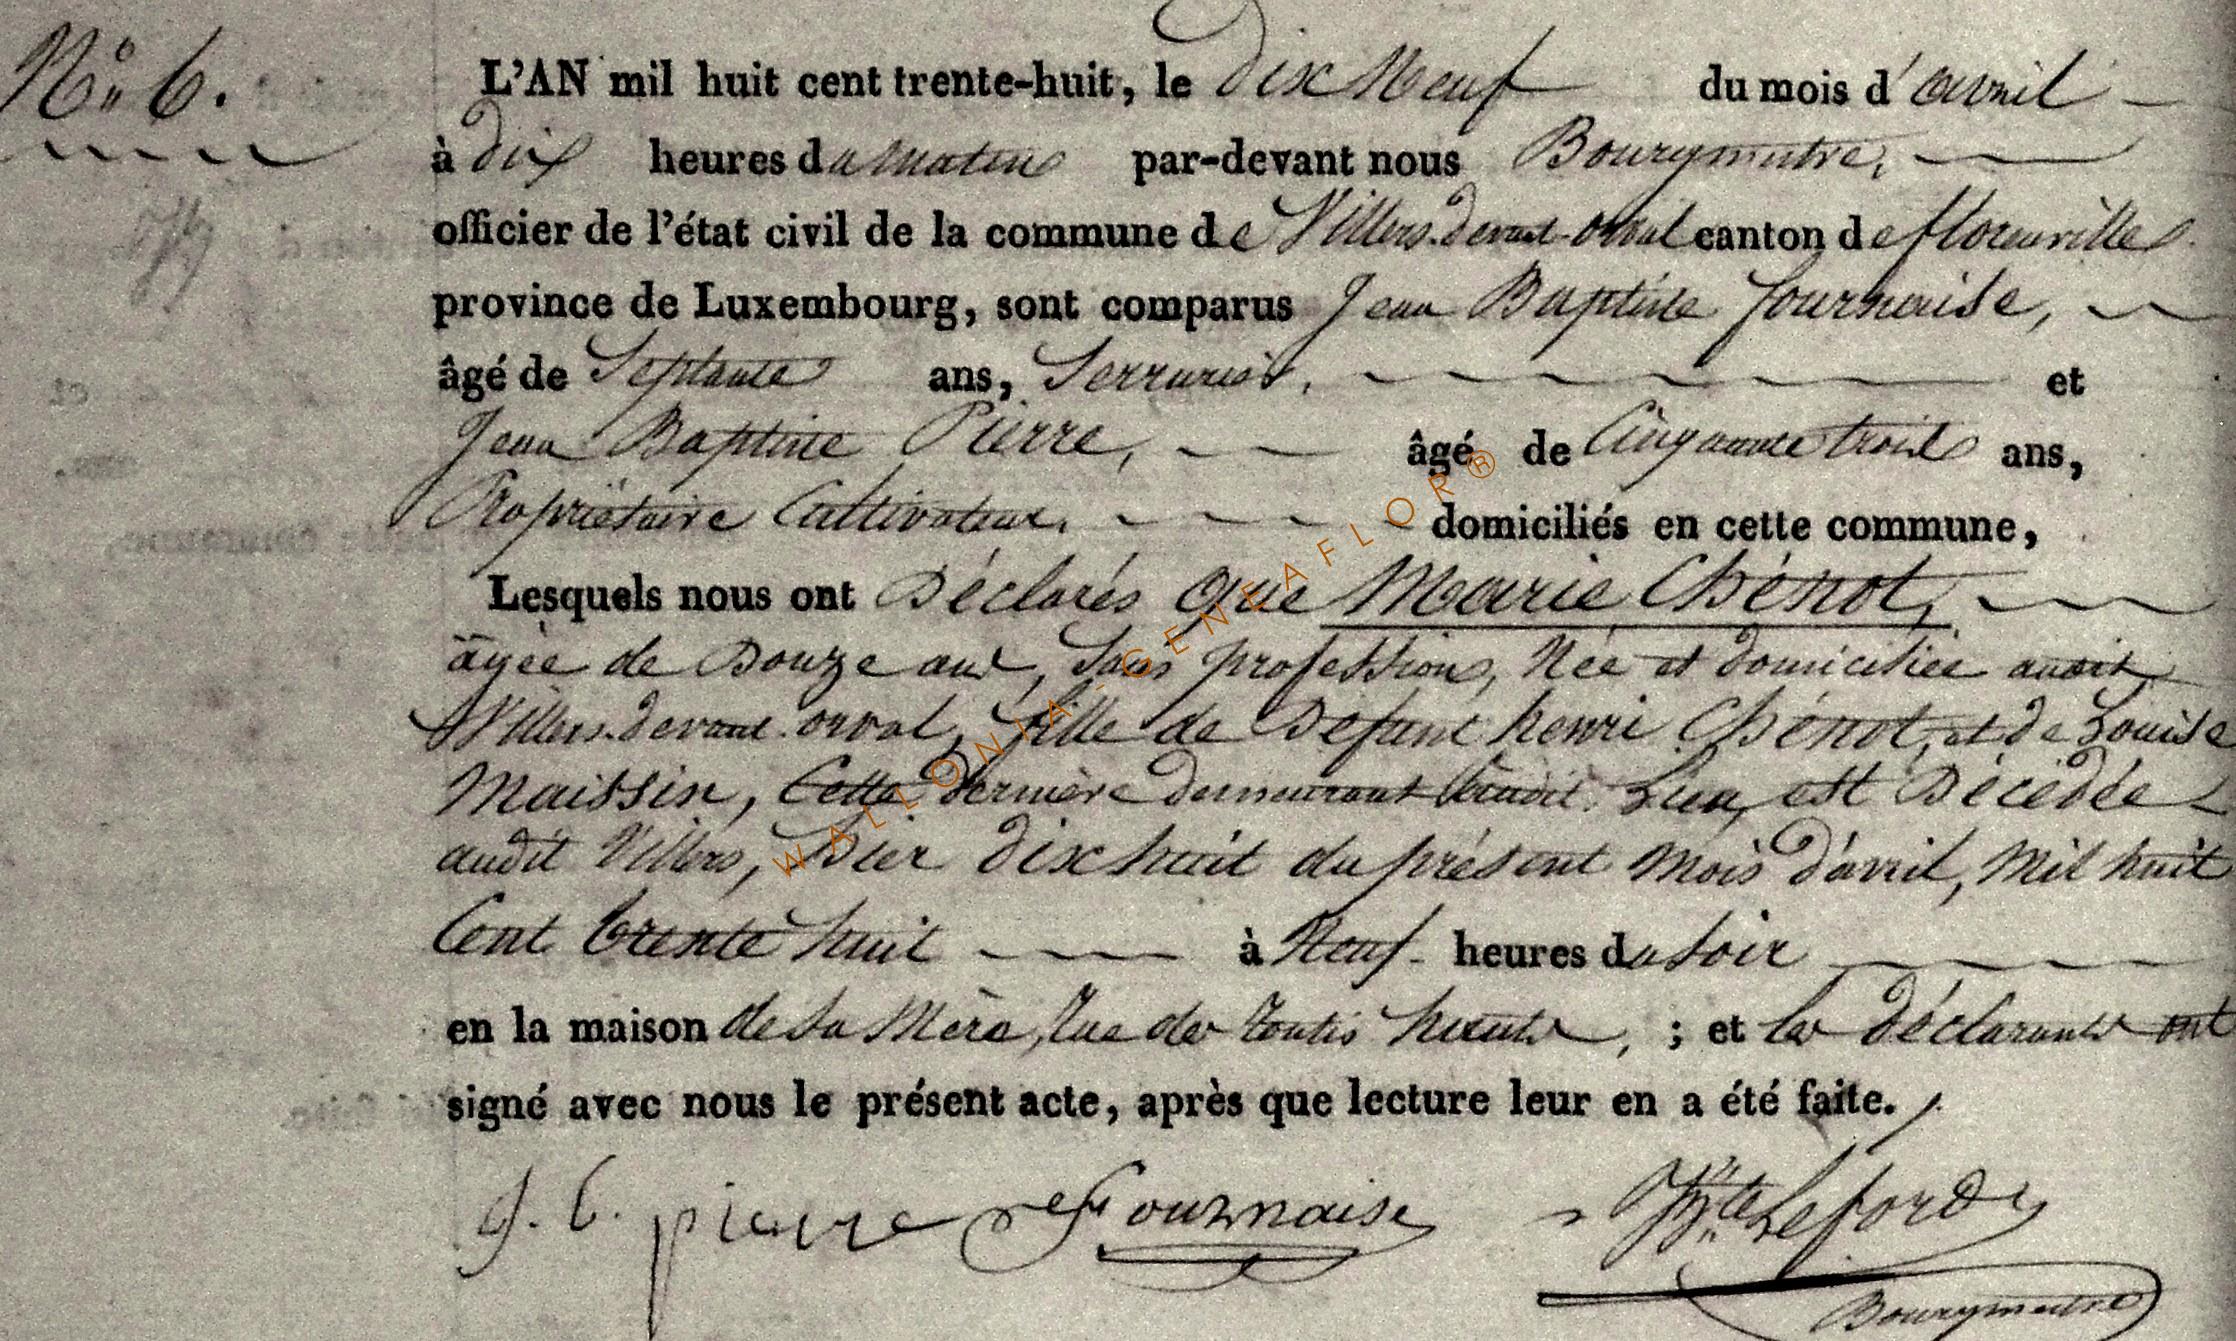 N° 6.
L'AN mil huit cent trente-huit, le dix Neuf du mois d'avril
à dix heures du matin par-devant nous Bourgmestre,
officier de l'état civil de la commune de Villers-devant-orval canton de florenville
province de Luxembourg, sont comparus Jean Baptiste fournaise,
âgé de Septante ans, Serrurier, et
Jean Baptiste Pierre, âgé de Cinquante trois ans,
Propriétaire Cultivateur, domiciliés en cette commune,
Lesquels nous ont Déclarés que Marie Chénot,
âgée de Douze ans, Sans profession, Née et domiciliée audit
Villers-devant-orval, fille de Défunt henri Chénot, et de Louise
Maissin, Cette dernière demeurant audit Lieu, est Décédée
audit Villers, hier dix huit du présent mois d'avril, mil huit
Cent trente huit à Neuf heures du soir
en la maison de sa Mère, rue des ; et les déclarants ont
signé avec nous le présent acte, après que lecture leur en a été faite.
J. b. pierre Fournaise Leford
Bourgmestre
WALLONIA-GENEAFLOR®